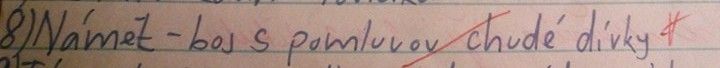 8) Námět - boj s pomluvou chudé dívky